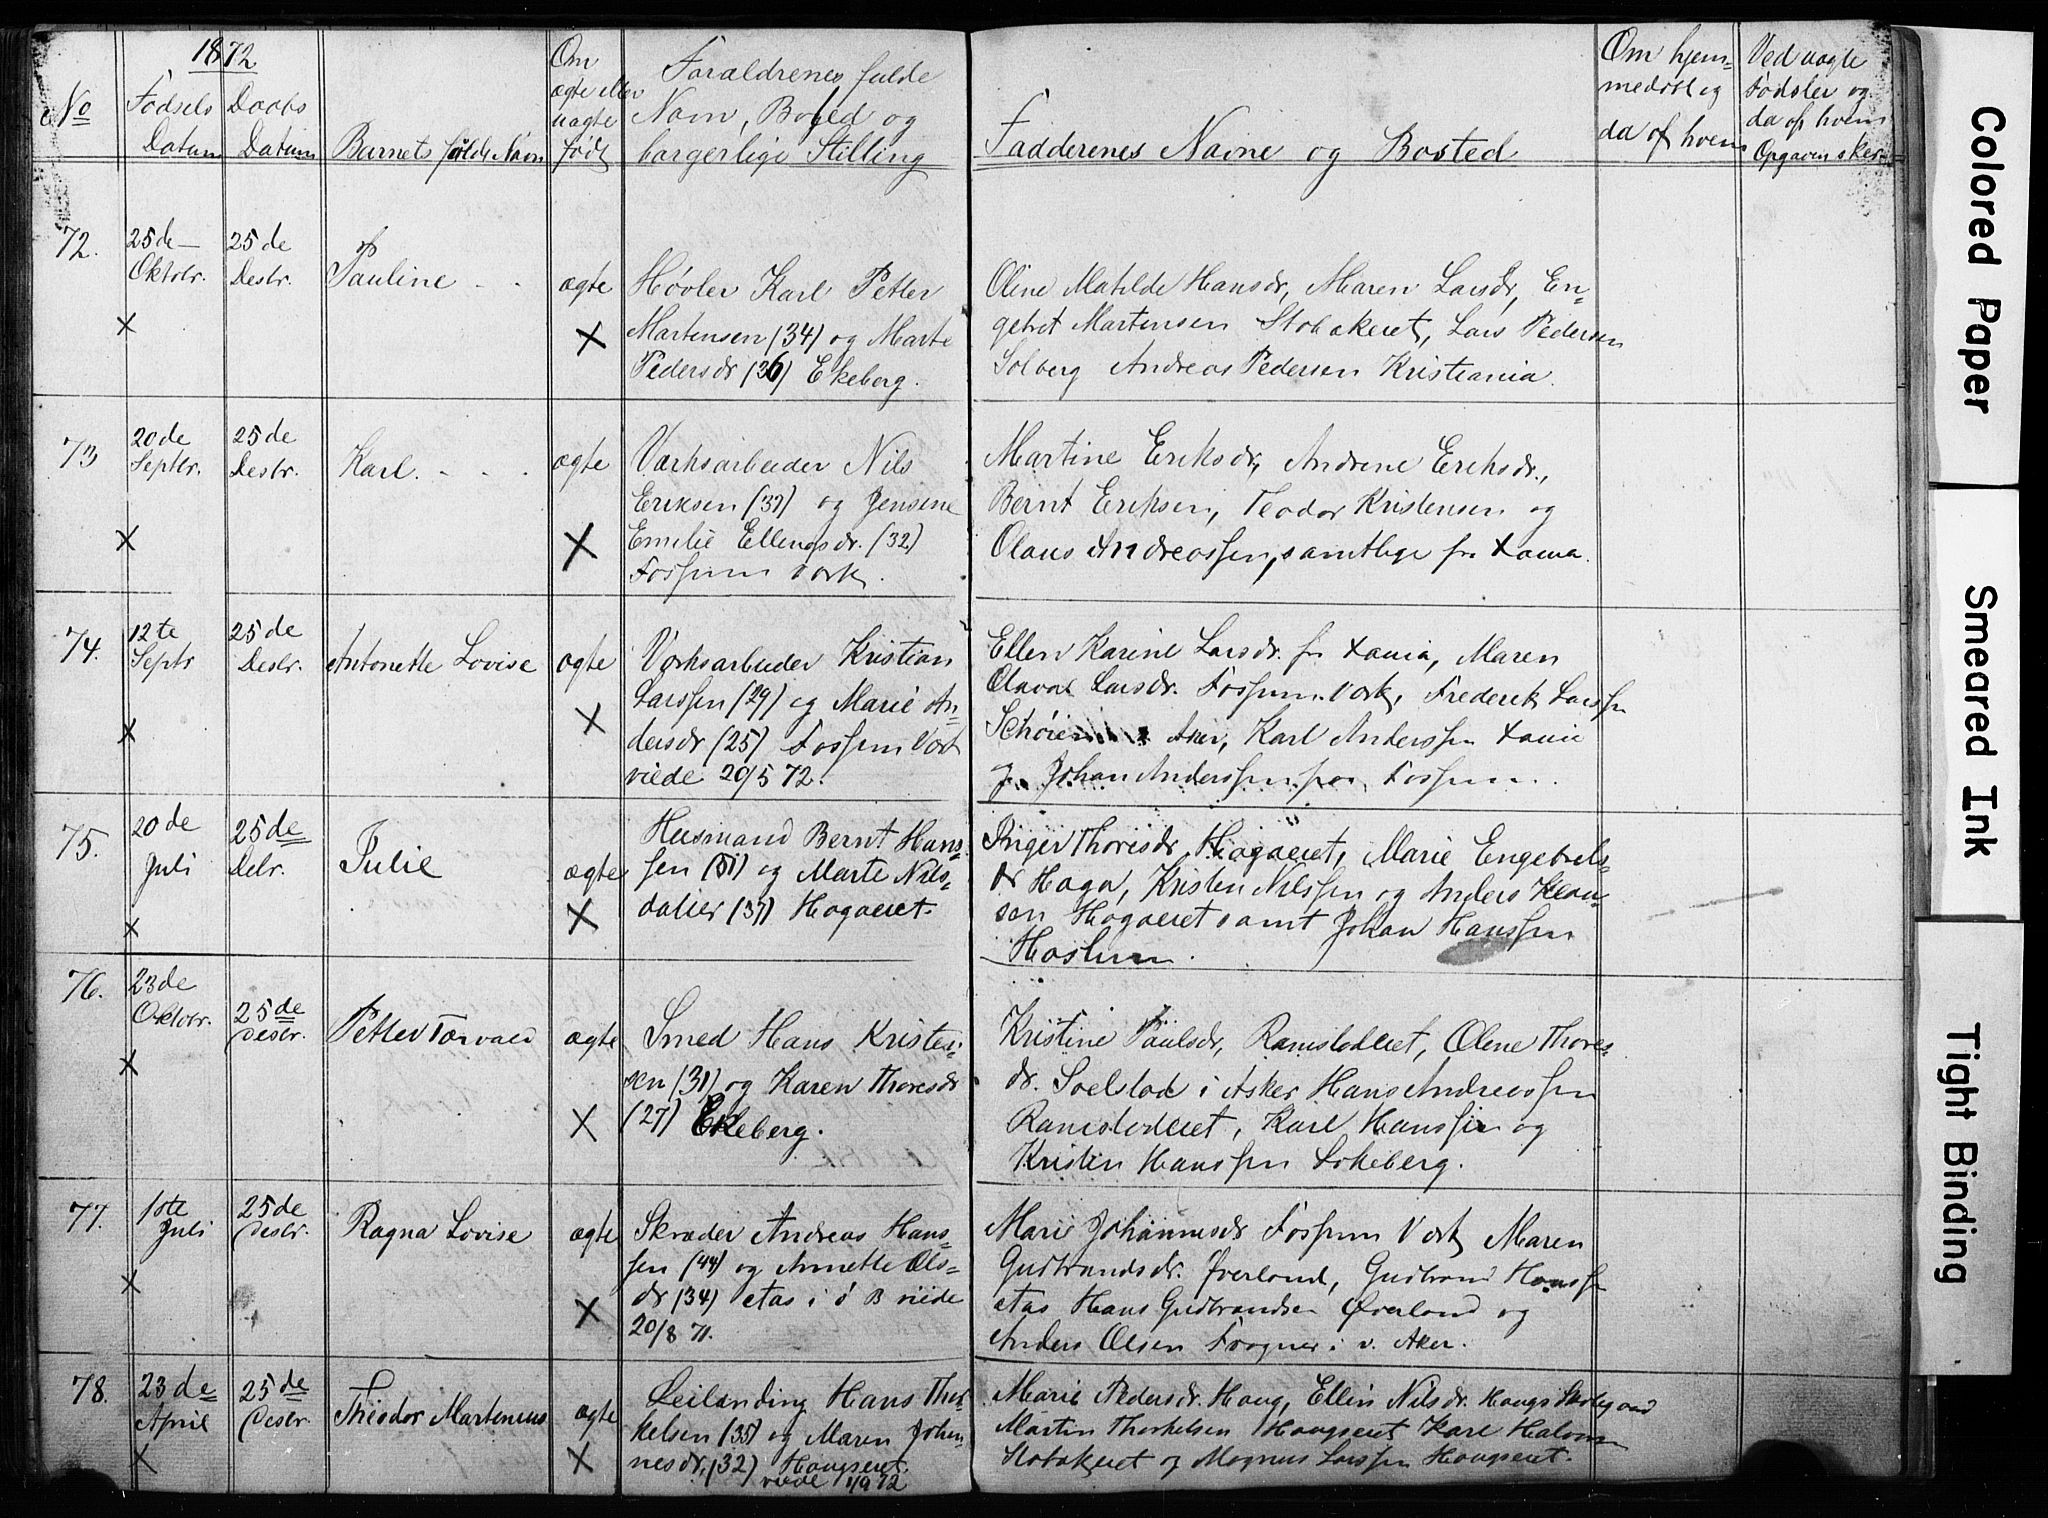 1872
No
Fødsels
Datum
Daabs
Datum
Barnets fulde Navn
Om
ægte eller
uægte
født
Forældrenes fulde
Navn, Bopæl og
borgerlige Stilling
Faddernes Navne og Bosted
Om hjem-
medøbt og
da af hvem
Ved uægte
Fødsler og
da af hvem
Opgaven sker
72.
25de
Oktobr.
25de
Desbr.
Pauline
ægte
Høvler Karl Petter
Martensen (34) og Marte
Pedersdr (36) Ekeberg.
Oline Matilde Hansdr, Maren Larsdr, En-
gebret Martensen Stovakeret, Lars Pedersen
Solberg Andreas Pedersen Kristiania.
73
20de
Septbr.
25de
Desbr.
Karl
ægte
Værksarbeider Nils
Eriksen (37) og Jensine
Emilie Ellingsdr. (32)
Fossum Værk.
Martine Eriksdr, Andrine Eriksdr.,
Bernt Eriksen, Teodor Kristensen og
Olaus Andreassen, samtlige fr Xania.
74.
12te
Septr
25de
Desbr.
Antonette Lovise
ægte
Værksarbeider Kristian
Larssen (29) og Marie An-
dersdr (25) Fossum Værk
viede 20/5 72.
Ellen Karine Larsdr. fr Xania, Maren
Olava Larsdr. Fossum Værk, Frederik Larssen
Schøien Aker, Karl Anderssen Xania
og Johan Anderssen paa Fossum.
75.
20de
Juli
25de
Debr.
Julie
ægte
Husmand Bernt Hans-
sen (31) og Marte Nils-
datter (37) Hagaeret.
Inger Thoresdr Hagaeret, Marie Engebrets-
dr Haga, Kristen Nilssen og Anders Klau-
sen Hagaeret samt Johan Hanssen
Haslum.
76.
23de
Oktobr.
25de
Desbr.
Petter Torvald
ægte
Smed Hans Kristen-
sen (31) og Karen Thoresdr
(27) Ekeberg.
Kristine Paulsdr, Ramstaderet, Olene Thores-
dr. Soelstad i Asker Hans Andreassen
Ramstaderet, Karl Hanssen og
Kristen Hanssen Lokeberg.
77.
18te
Juli
25de
Desbr.
Ragna Lovise
ægte
Skræder Andreas Hans-
sen (44) og Annette Ols-
dr (34) etas i ø B viede
20/8 71.
Marie Johannesdr Fossum Værk Maren
Gudbrandsdr. Øverland, Gudbrand Hanssen
etas Hans Gudbrandsen Øverland og
Anders Olsen Frogner i v. Aker.
78.
23de
April
25de
Desbr.
Theodor Martinius
ægte
Leilænding Hans Thor-
kelsen (35) og Maren Johan-
nesdr, (32) Haugseret.
viede 1/9 72
Marie Pedersdr. Haug, Ellin Nilsdr. Haugs
Martin Thorkelsen Haugseret Karl Halvorsen
Stovakeret og Magnus Larssen Haugseret.
Colored Paper
Smeared Ink
Tight Binding